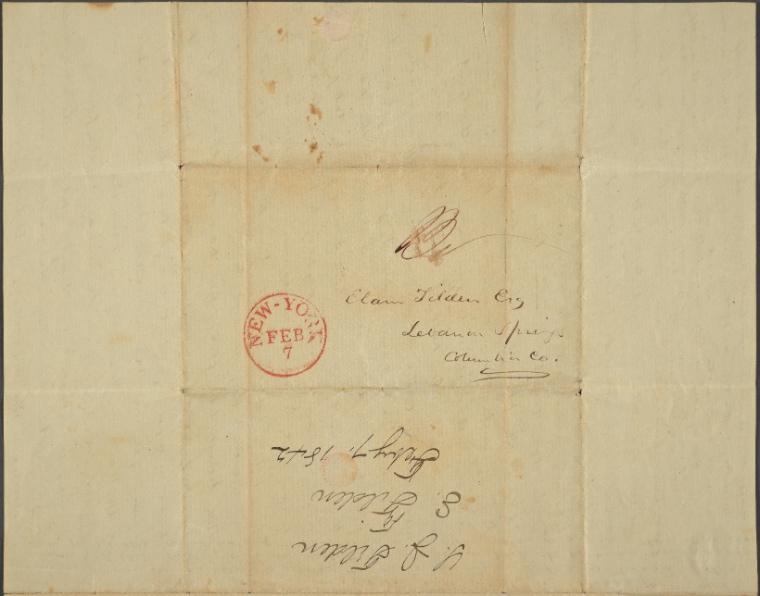 Elam Tilden Esq
Lebanon Springs
Columbia Co.
NEW-YORK
FEB
7
S. J. Tilden
E. Tilden
Feby 7, 1842